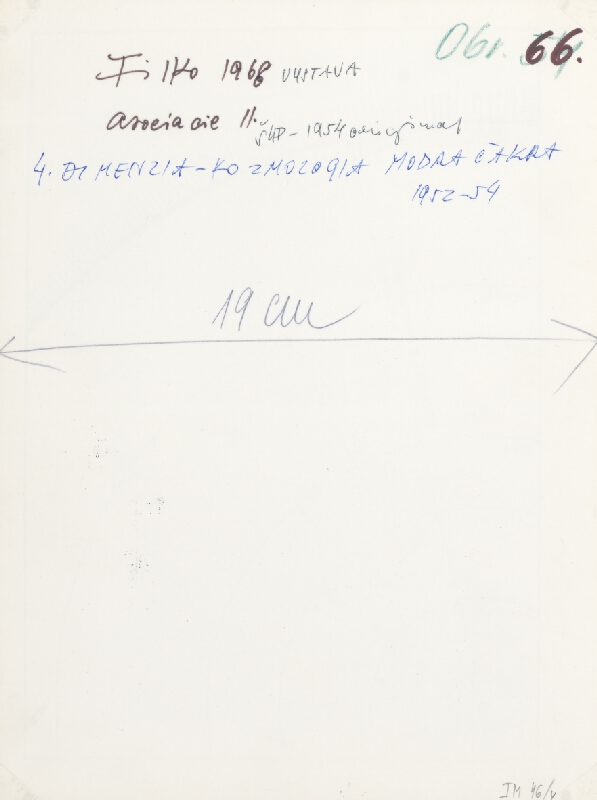 Obr. 66.
Filko 1968 VÝSTAVA
Asociacie II. 1954
4. DIMENZIA-KOZMOLOGIA MODRA ČAKRA
1952-54
19 cm
IM 46/v